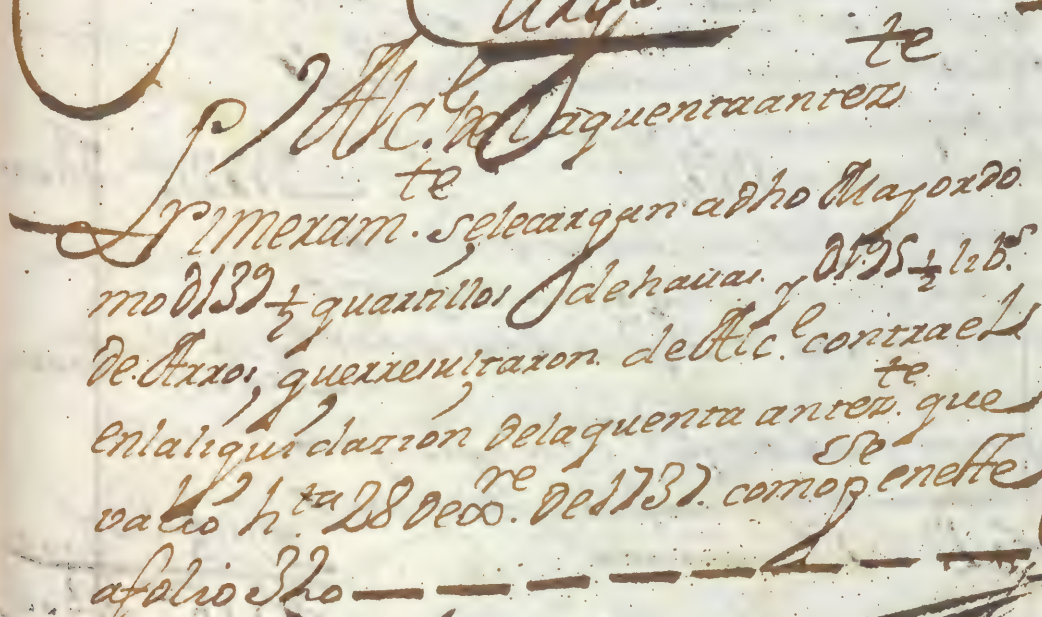 Cargo
P.r Alc.l de la quenta antez.te
Primeram.te se le cargan a dho Mayordo
mo 0139 ½ quartillos de havas. y 0195 ½ lib.s
de Arros, que rresultaron de Alc.l contra el
en la liquidazion de la quenta antez.te que
h.ta 28 de
re De 1737. como
se en este
a folio